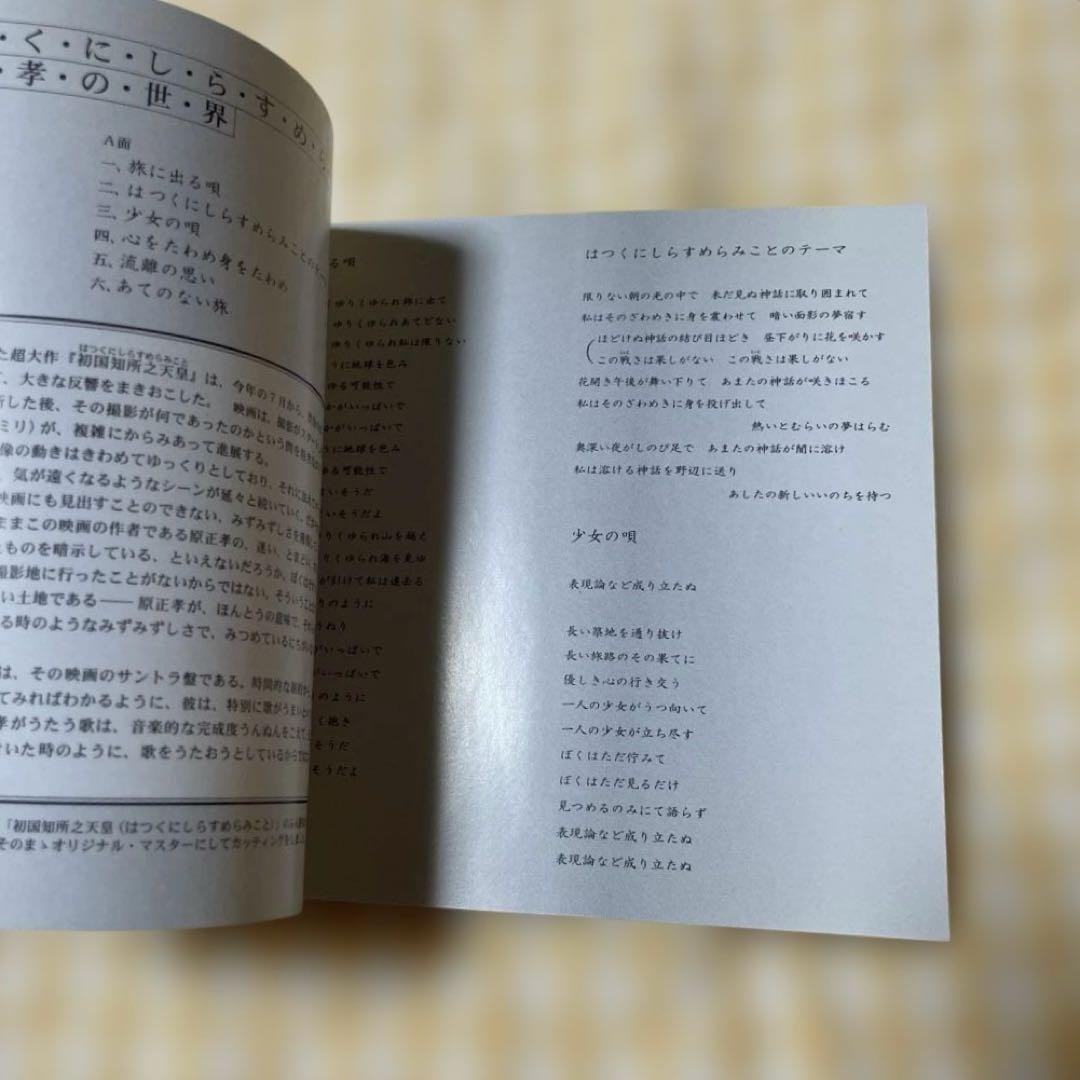 ・く・に・し・ら・す・め・ら
孝・の・世・界
A面
一、旅に出る唄
二、はつくにしらすめらみことの
三、少女の唄
四、心をたわめ身をたわめ
五、流離の思い
六、あてのない旅
た超大作『初国知所之天皇』は、今年の7月から、
はつくにしらすめらみこと
、大きな反響をまきおこした。 映画は、撮影が
した後、その撮影が何であったのかという問を
ミリ)が、複雑にからみあって進展する。
像の動きはきわめてゆっくりとしており、それに
、気が遠くなるようなシーンが延々と続いていく。
映画にも見出すことのできない、みずみずしさを
ままこの映画の作者である原正孝の、迷い、と
ものを暗示している、といえないだろうか。ぼくは
撮影地に行ったことがないからではない。そういう
い土地である── 原正孝が、ほんとうの意味で、
る時のようなみずみずしさで、みつめているに
は、その映画のサントラ盤である。時間的な
てみればわかるように、彼は、特別に歌がうまい
孝がうたう歌は、音楽的な完成度うんぬんをこえ
いた時のように、歌をうたおうとしているから
「初国知所之天皇(はつくにしらすめらみこと)」の
そのまゝオリジナル・マスターにしてカッティングをしま
る唄
ゆりくゆられ旅に出て
ゆりくゆられあてどない
ゆりくゆられ私は限りない
うに地球を包み
ゆる可能性で
かがいっぱいで
かがいっぱいで
うに地球を包み
る可能性で
いそうだ
いそうだよ
りくゆられ山を越え
りくゆられ海を見ゆ
が引けて私は遠去る
りのように
うねり
がいっぱいで
いっぱいで
のように
く抱き
そうだ
そうだよ
はつくにしらすめらみことのテーマ
限りない朝の光の中で 未だ見ぬ神話に取り囲まれて
私はそのざわめきに身を震わせて 暗い面影の夢宿す
ほどけぬ神話の結び目ほどき 昼下がりに花を咲かす
この戦さは果しがない この戦さは果しがない
花開き午後が舞い下りて あまたの神話が咲きほこる
私はそのざわめきに身を投げ出して
熱いとむらいの夢はらむ
奥深い夜がしのび足で あまたの神話が闇に溶け
私は溶ける神話を野辺に送り
あしたの新しいいのちを待つ
少女の唄
表現論など成り立たぬ
長い築地を通り抜け
長い旅路のその果てに
優しき心の行き交う
一人の少女がうつ向いて
一人の少女が立ち尽す
ぼくはただ佇みて
ぼくはただ見るだけ
見つめるのみにて語らず
表現論など成り立たぬ
表現論など成り立たぬ